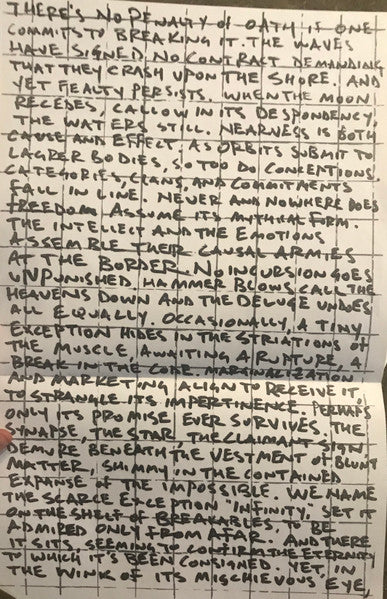 THERE'S NO PENALTY of OATH IF ONE
COMMITS TO BREAKING IT. THE WAVES
HAVE SIGNED NO CONTRACT DEMANDING
THAT THEY CRASH UPON THE SHORE. AND
YET FEALTY PERSISTS. WHEN THE MOON
RECEDES, CALLOW IN ITS DESPONDENCY,
THE WATERS STILL. NEARNESS IS BOTH
CAUSE AND EFFECT, AS ORBITS SUBMIT TO
LAGRER BODIES, SO TOO DO CONCENTIONS,
CATEGORIES, CLANS, AND COMMITMENTS
FALL IN LINE. NEVER AND NOWHERE DOES
FREEDOM ASSUME ITS MYTHICAL FORM.
THE INTELLECT AND THE EMOTIONS
ASSEMBLE THEIR CAUSAL ARMIES
AT THE BORDER. NO INCURSION GOES
UNPUNISHED. HAMMER BLOWS CALL THE
HEAVENS DOWN AND THE DELUGE UNDOES
ALL EQUALLY. OCCASIONALLY, A TINY
EXCEPTION HIDES IN THE STRIATIONS OF
THE MUSCLE, AWAITING A RUPTURE, A
BREAK IN THE CODE. MARGINALIZATION
AND MARKETING ALIGN TO RECEIVE IT,
TO STRANGLE ITS IMPERTINENCE. PERHAPS
ONLY ITS PROMISE EVER SURVIVES. THE
SYNAPSE, THE STAR, THE CLAIMANT'S SIGN
DEMURE BENEATH THE VESTMENT OF BLUNT
MATTER, SHIMMY IN THE CONTAINED
EXPANSE OF THE IMPOSSIBLE. WE NAME
THE SCARCE EXCEPTION "INFINITY," SET IT
ON THE SHELF OF BREAKABLES, TO BE
ADMIRED ONLY FROM AFAR. AND THERE
IT SITS SEEMING TO CONFIRM THE ETERNITY
TO WHICH IT'S BEEN CONSIGNED. YET, IN
THE WINK OF ITS MISCHIEVOUS EYE,